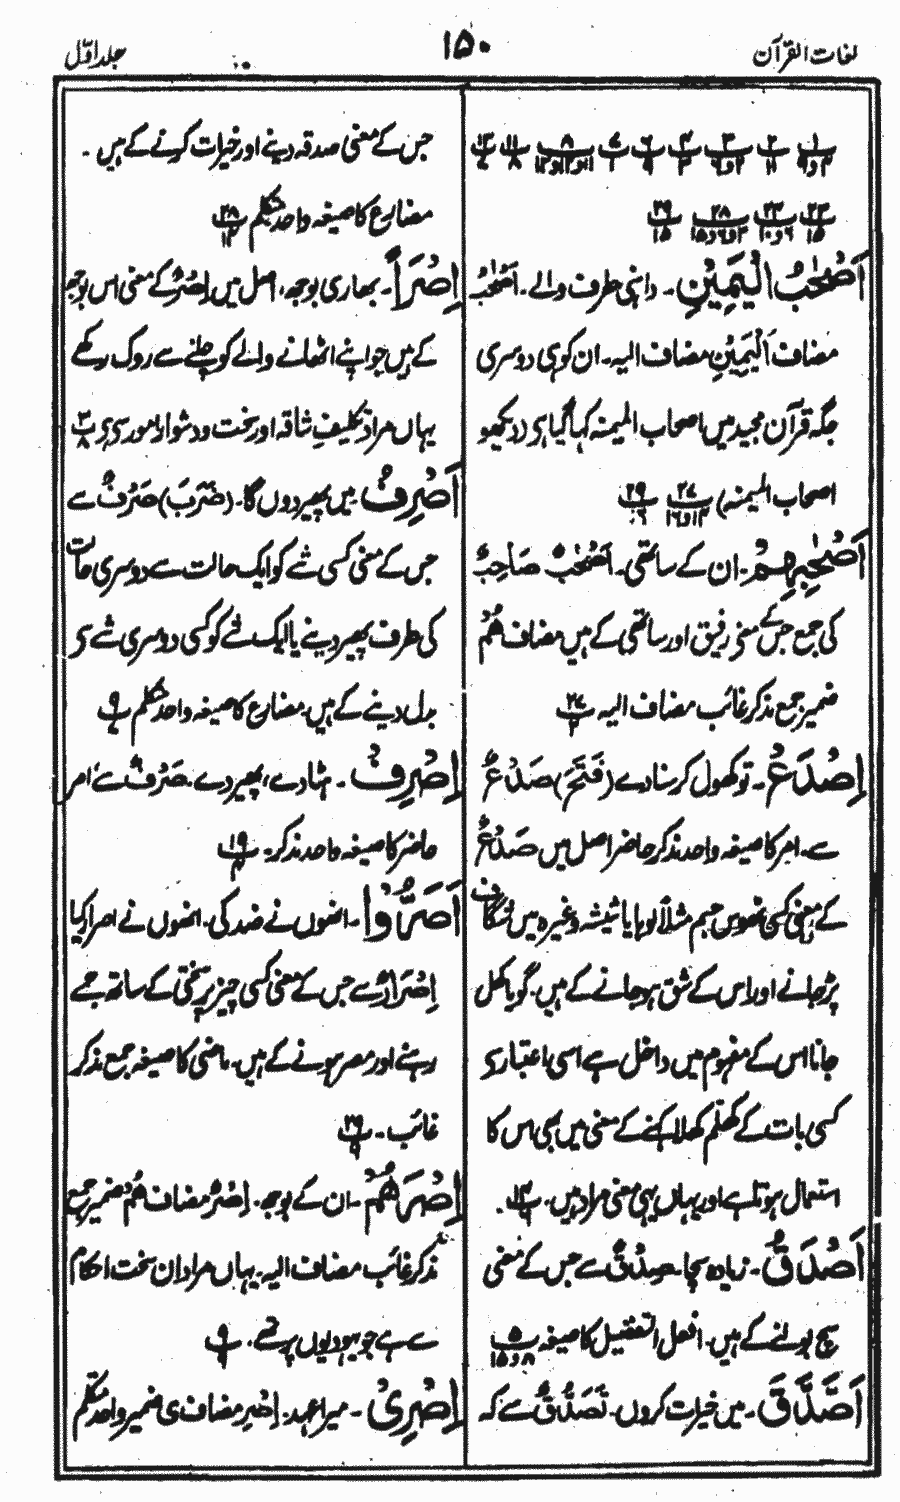 لغات القرآن
۱۵۰
جلد اوّل
اَصْحٰبُ الْيَمِيْنِ۔ داہنی طرف والے۔ اَصْحٰبُ
مضاف اَلْيَمِيْنِ مضاف الیہ۔ ان کو ہی دوسری
جگہ قرآن مجید میں اصحاب المیمنہ کہا گیا ہی (دیکھو
اصحاب المیمنہ)
اَصْحٰبِهِمْ۔ ان کے ساتھی۔ اَصْحٰبٌ صَاحِبٌ
کی جمع جس کے معنی رفیق اور ساتھی کے ہیں مضاف هُمْ
ضمیر جمع مذکر غائب مضاف الیہ
اِصْدَعْ۔ تو کھول کر سنا دے (فَتَحَ) صَدْعٌ
سے۔ امر کا صیغہ واحد مذکر حاضر اصل میں صَدْعٌ
کے معنی کسی ٹھوس جسم مثلاً لوہا یا شیشہ وغیرہ میں شگاف
پڑ جانے اور اس کے شق ہو جانے کے ہیں۔ گویا کھل
جانا اس کے مفہوم میں داخل ہے اسی اعتبار سے
کسی بات کے کھلم کھلا کہنے کے معنی میں بھی اس کا
استعمال ہوتا ہے اور یہاں یہی معنی مراد ہیں۔
اَصْدَقُ۔ زیادہ سچا۔ صِدْقٌ سے جس کے معنی
سچ بولنے کے ہیں۔ افعل التفضیل کا صیغہ
اَصَّدَّقَ۔ میں خیرات کروں۔ تَصَدُّقٌ سے کہ
جس کے معنی صدقہ دینے اور خیرات کرنے کے ہیں۔
مضارع کا صیغہ واحد متکلم
اِصْرًا۔ بھاری بوجھ، اصل میں اِصْرٌ کے معنی اس بوجھ
کے ہیں جو اپنے اٹھانے والے کو چلنے سے روک رکھے
یہاں مراد تکلیف شاقہ اور سخت و دشوار امور سے ہی
اَصْرِفُ۔ میں پھیر دوں گا۔ (ضَرَبَ) صَرْفٌ سے
جس کے معنی کسی شے کو ایک حالت سے دوسری حالت
کی طرف پھیر دینے یا ایک شے کو کسی دوسری شے سے
بدل دینے کے ہیں۔ مضارع کا صیغہ واحد متکلم
اِصْرِفْ۔ ہٹا دے، پھیر دے۔ صَرْفٌ سے امر
حاضر کا صیغہ واحد مذکر۔
اَصَرُّوْا۔ انھوں نے ضد کی۔ انھوں نے اصرار کیا
اِصْرَارٌ سے جس کے معنی کسی چیز پر سختی کے ساتھ جمے
رہنے اور مصر ہونے کے ہیں۔ ماضی کا صیغہ جمع مذکر
غائب۔
اِصْرَهُمْ۔ ان کے بوجھ۔ اِصْرَ مضاف هُمْ ضمیر جمع
مذکر غائب مضاف الیہ یہاں مراد ان سخت احکام
سے ہے جو یہودیوں پر تھے۔
اِصْرِىْ۔ میرا عہد۔ اِصْرِ مضاف ی ضمیر واحد متکلم